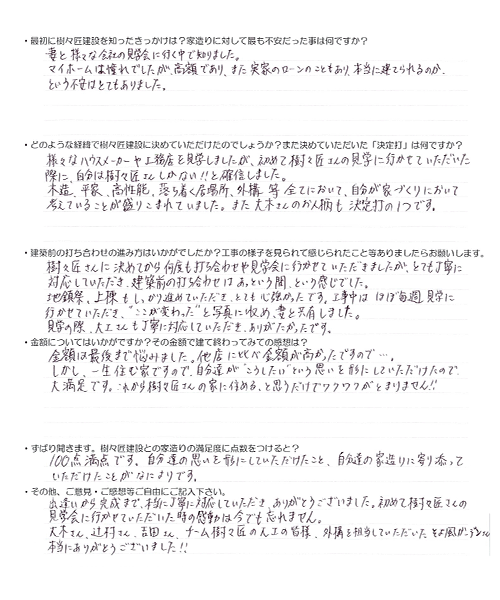 ・最初に樹々匠建設を知ったきっかけは？家造りに対して最も不安だった事は何ですか？
妻と様々な会社の見学会に行く中で知りました。
マイホームは憧れでしたが、高額であり、また実家のローンのこともあり、本当に建てられるのか、
という不安はとてもありました。
・どのような経緯で樹々匠建設に決めていただけたのでしょうか？また決めていただいた「決定打」は何ですか？
様々なハウスメーカーや工務店を見学しましたが、初めて樹々匠さんの見学に行かせていただいた
際に、自分は樹々匠さんしかない!!と確信しました。
木造、平家、高性能、落ち着く居場所、外構 等 全てにおいて、自分が家づくりにおいて
考えていることが盛りこまれていました。また大木さんのお人柄も決定打の1つです。
・建築前の打ち合わせの進み方はいかがでしたか？工事の様子を見られて感じられたこと等ありましたらお願いします。
樹々匠さんに決めてから何度も打ち合わせや見学会に行かせていただきましたが、とても丁寧に
対応していただき、建築前の打ち合わせはあっという間、という感じでした。
地鎮祭、上棟もしっかり進めていただき、とても心強かったです。工事中はほぼ毎週、見学に
行かせていただき、"ここが変わった"と写真に収め、妻と共有しました。
見学の際、大工さんも丁寧に対応していただき、ありがたかったです。
・金額についてはいかがですか？その金額で建て終わってみての感想は？
金額は最後まで悩みました。他店に比べ金額が高かったですので…。
しかし、一生住む家ですので、自分達が"こうしたい"という思いを形にしていただけたので、
大満足です。これから樹々匠さんの家に住める、と思うだけでワクワクがとまりません!!
・ずばり聞きます。樹々匠建設との家造りの満足度に点数をつけると？
100点満点です。自分達の思いを形にしていただけたこと、自分達の家造りに寄り添って
いただけたことがなによりです。
・その他、ご意見・ご感想等ご自由にご記入下さい。
出逢いから完成まで、本当に丁寧に対応していただき、ありがとうございました。初めて樹々匠さんの
見学会に行かせていただいた時の感動は今でも忘れません。
大木さん、辻村さん、吉田さん、チーム樹々匠の大工の皆様、外構を担当していただいたそよ風ガーデンさん
本当にありがとうございました!!